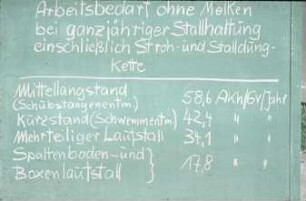 Arbeitsbedarf ohne Melken
bei ganzjähriger Stallhaltung
einschließlich Stroh- und Stalldung-
kette
Mittellangstand 58,6 AKh/GV/Jahr
(Schubstangenentm.)
Kurzstand (Schwemmentm.) 42,4 " "
Mehrteiliger Laufstall 34,1 " "
Spaltenboden- und } 17,8 " "
Boxenlaufstall